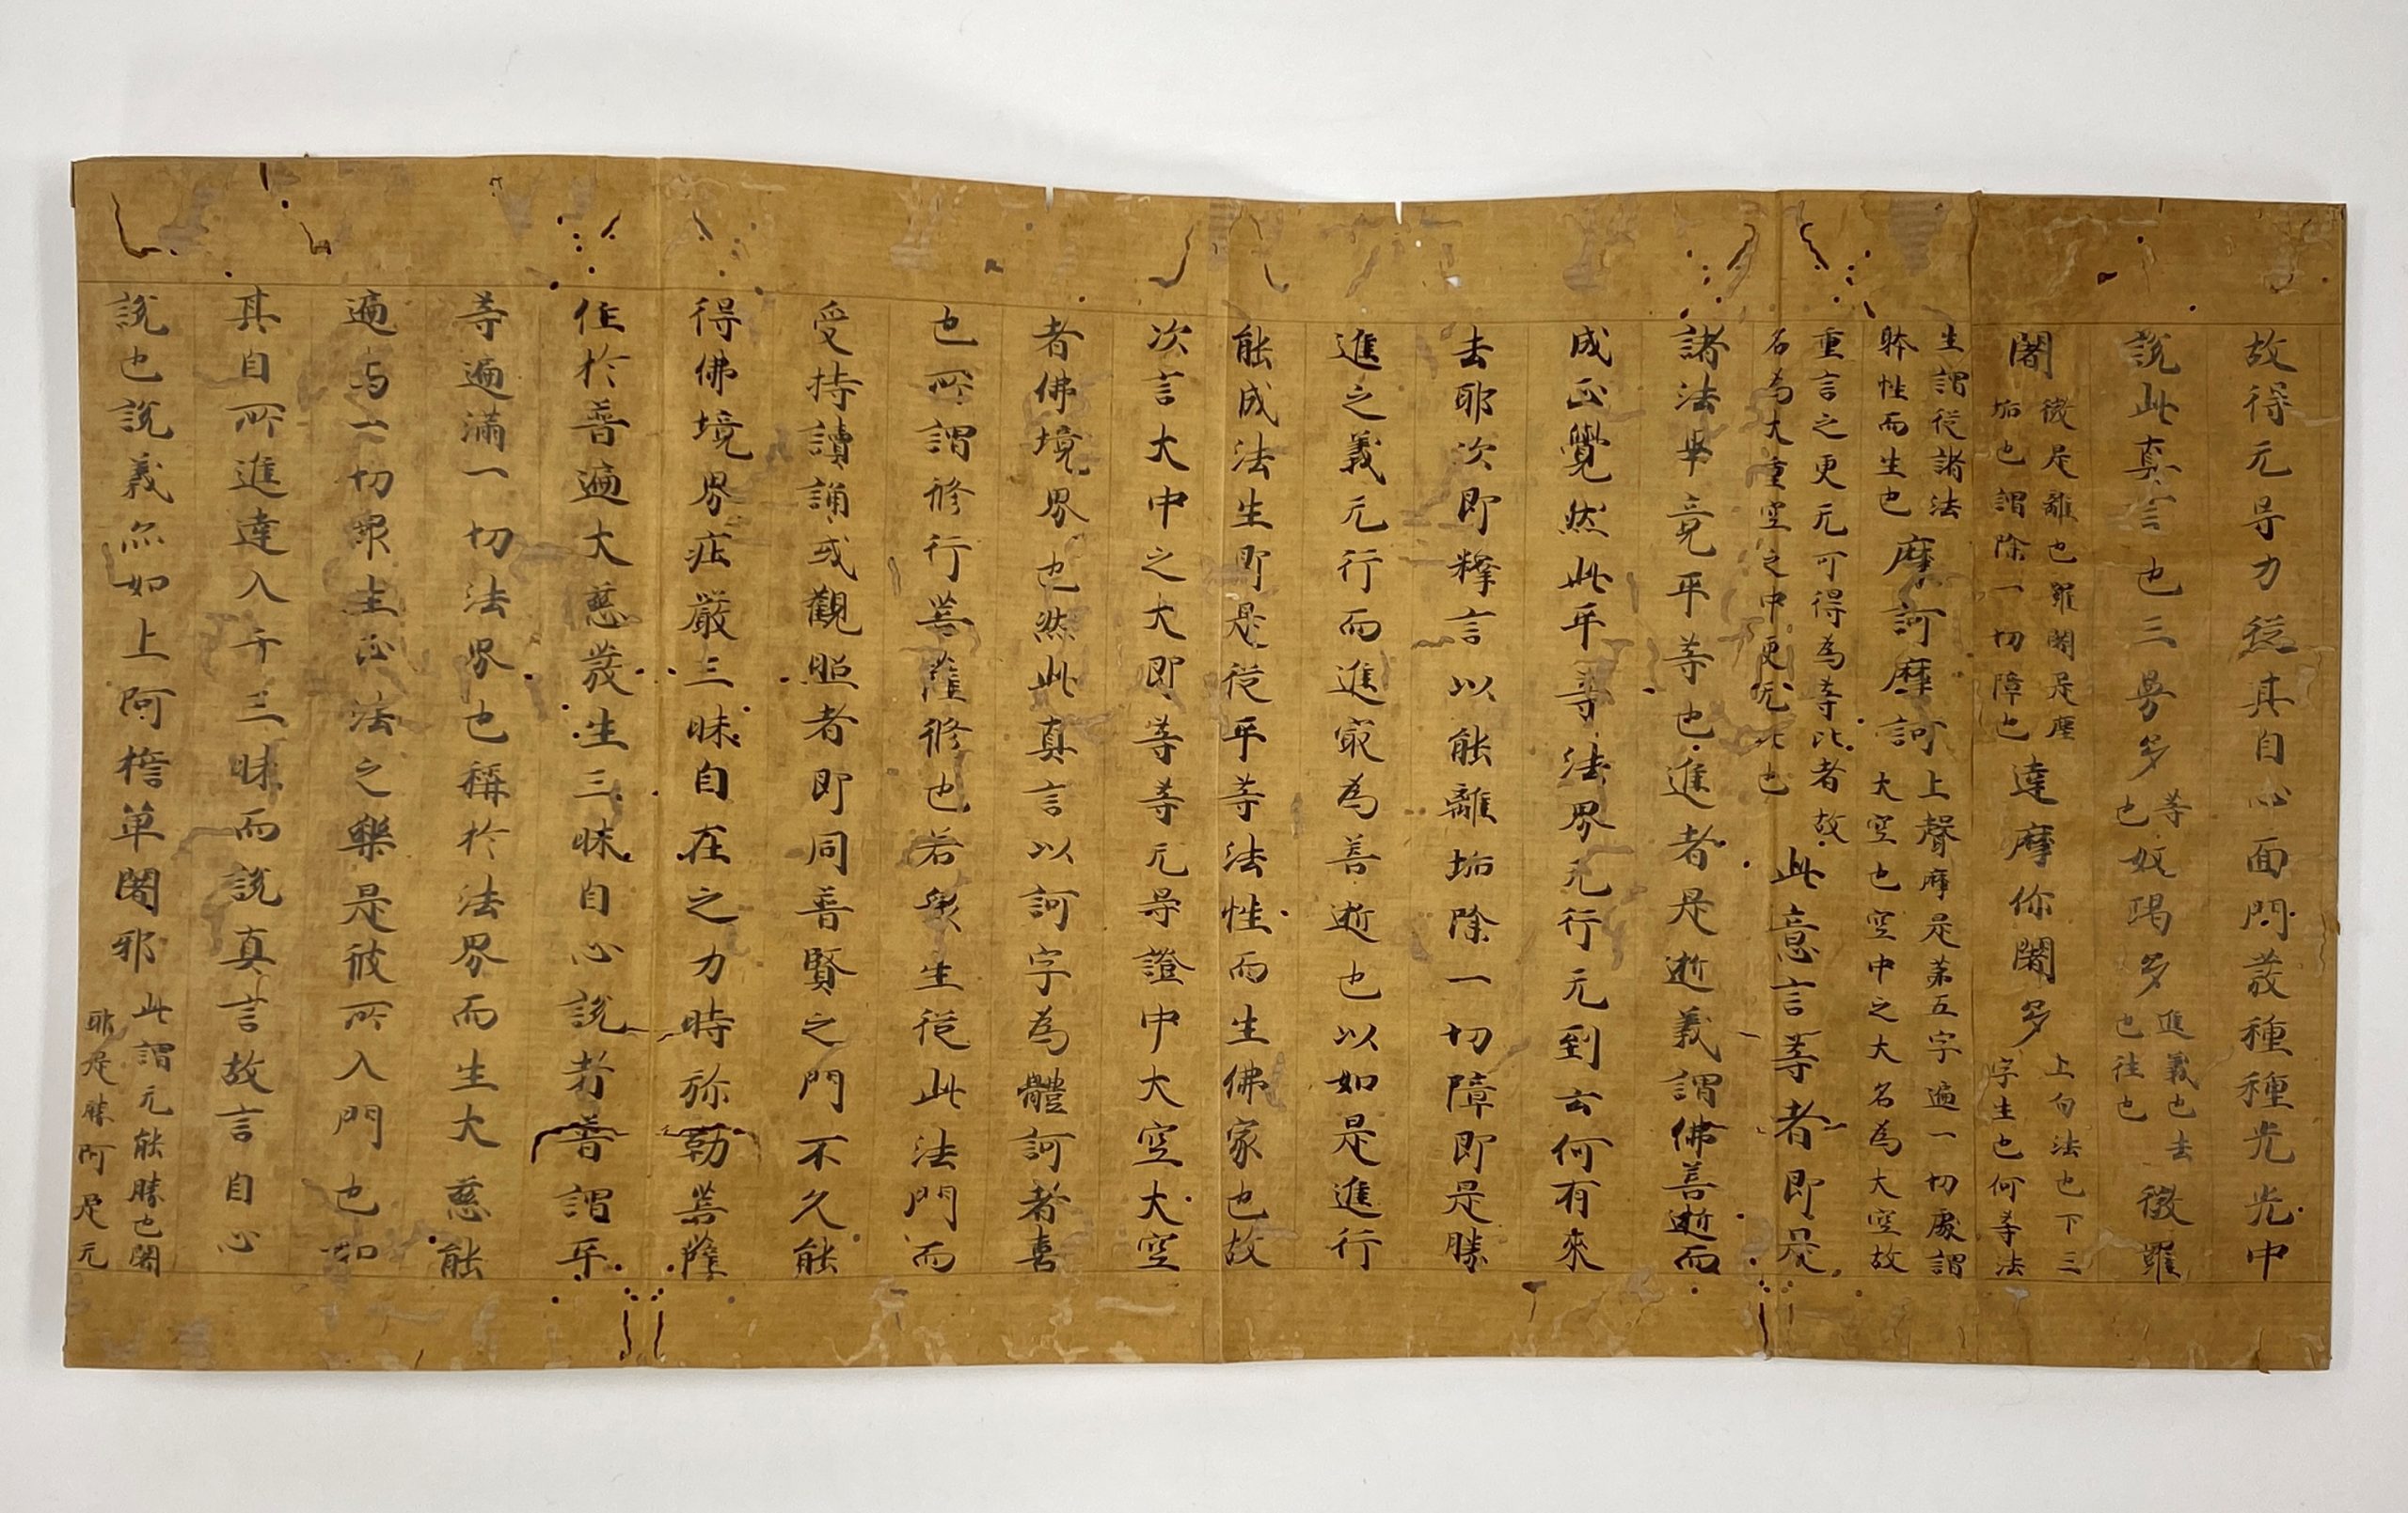 故得无㝵力從其自心面門發種種光光中
說此真言也三曼多等也奴揭多進義也去也往也徵羅
闍徵是離也羅闍是塵垢也謂除一切障也達摩你闍多上句法也下三字生也何等法
生謂從諸法躰性而生也摩訶摩訶上聲摩是第五字遍一切處謂大空也空中之大名為大空故
重言之更无可得為等比者故名為大重空之中更無比也此意言等者即是
諸法畢竟平等也進者是逝義謂佛善逝而
成正覺然此平等法界无行无到云何有來
去耶次即釋言以能離垢除一切障即是勝
進之義无行而進㝡為善逝也以如是進行
能成法生即是從平等法性而生佛家也故
次言大中之大即等等无㝵證中大空大空
者佛境界也然此真言以訶字為體訶者喜
也所謂修行菩薩修也若衆生從此法門而
受持讀誦或觀照者即同普賢之門不久能
得佛境界庄嚴三昧自在之力時弥勒菩薩
住於普遍大慈發生三昧自心說者普謂平
等遍滿一切法界也稱於法界而生大慈能
遍与一切衆生正法之樂是彼所入門也如
其自所進達入于三昧而說真言故言自心
說也說義亦如上阿檐單闍邪此謂无能勝也闍耶是勝阿是无